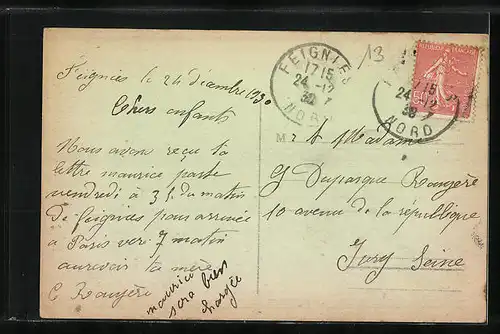 Feignies le 24 décembre 1930
Chers enfants
Nous avons reçu ta
lettre maurice parte
vendredi à 3 h du matin
De feignies pour arrivée
a Paris vers 7 matin
au revoir ta mère
C Rouyère
maurice
sera bien
chargée
FEIGNIES
17 15
24 -12
30
NORD
13
M r et Madame
G Duparque Rouyère
10 avenue de la république
Ivry Seine
15
24 -12
30
NORD